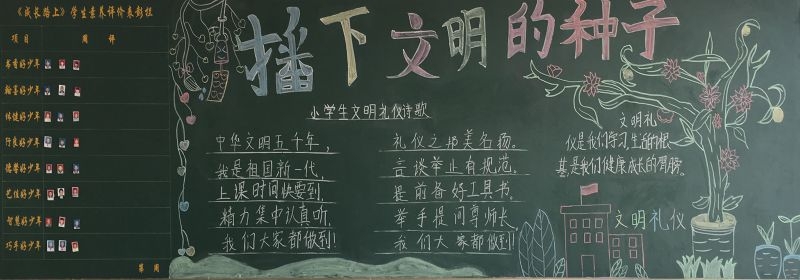 《成长路上》学生素养评价表彰栏
项目 周评
书香好少年
翰墨好少年
体健好少年
行良好少年
儒学好少年
艺佳好少年
智慧好少年
巧手好少年
第 周
播下文明的种子
小学生文明礼仪诗歌
中华文明五千年,
我是祖国新一代,
上课时间快要到,
精力集中认真听,
我们大家都做到!
礼仪之邦美名扬。
言谈举止有规范。
提前备好工具书。
举手提问尊师长,
我们大家都做到!
文明礼
仪是我们学习,生活的根
基,是我们健康成长的肩膀。
文明礼仪